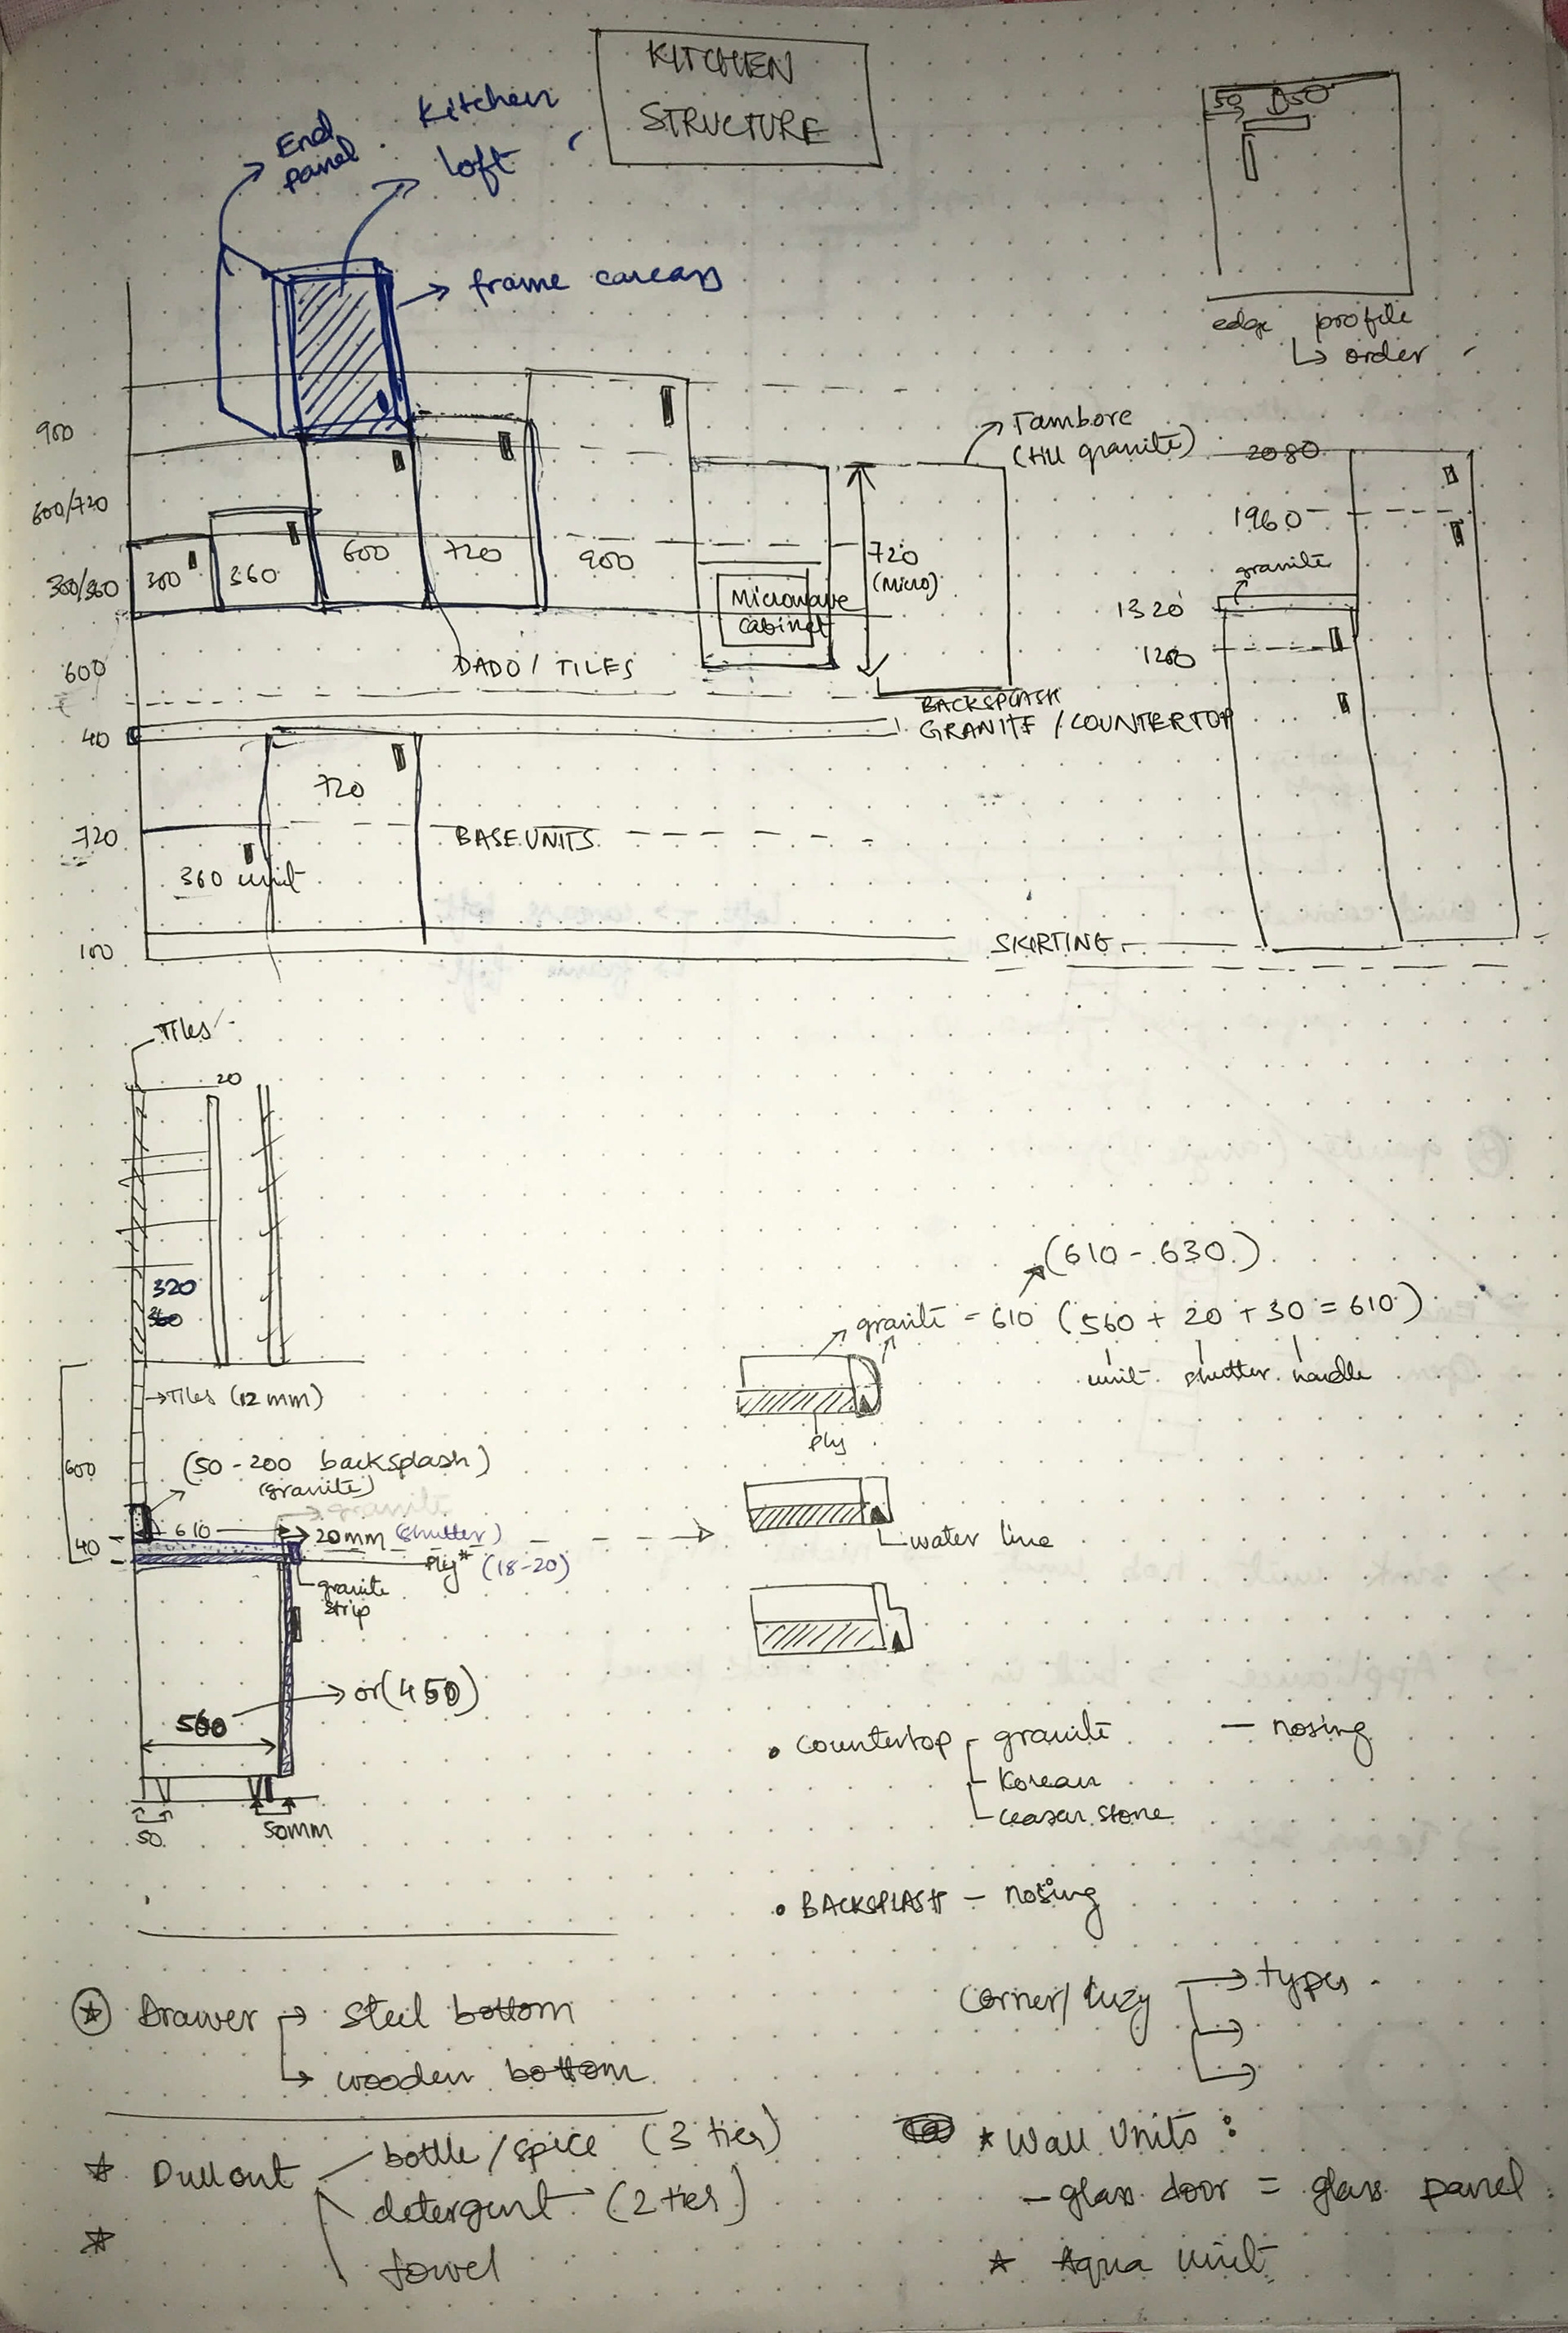 KITCHEN
STRUCTURE
End
panel
Kitchen
loft
frame carcass
50 50
edge profile
↳ order
900
600/720
300/360
600
40
720
100
300
360
600
720
900
Microwave
cabinet
720
(micro)
Tambore
(till granite)
2080
1960
granite
1320
1200
DADO / TILES
BACKSPLASH
GRANITE / COUNTERTOP
720
BASE UNITS
360 unit
SKIRTING
Tiles
20
320
360
→Tiles (12mm)
600
(50-200 backsplash)
(granite)
610
20mm (shutter)
40
Ply* (18-20)
granite
strip
→ or (450)
560
50
50mm
(610 - 630)
granite = 610 (560 + 20 + 30 = 610)
unit shutter handle
Ply
water line
• Countertop - granite — nosing
- Korean
- ceasar stone
• BACKSPLASH — nosing
Drawer → steel bottom
↳ wooden bottom
Corner/ → types
* Pullout bottle/spice (3 tier)
detergent (2 tier)
towel
* Wall Units :
- glass door = glass panel
* Aqua unit